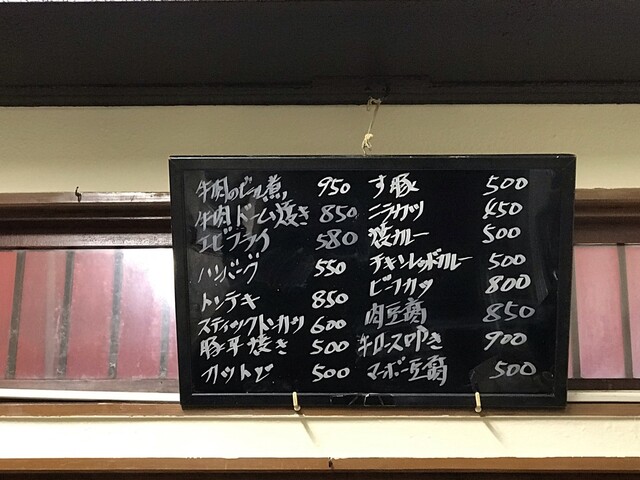 牛肉のビール煮 950
牛肉ドーム焼き 850
エビフライ 580
ハンバーグ 550
トンテキ 850
スティックトンカツ 600
豚平焼き 500
オットセイ 500
す豚 500
ニラカツ 450
焼カレー 500
チキンレッドカレー 500
ビーフカツ 800
肉豆腐 850
牛ロース叩き 900
マーボー豆腐 500